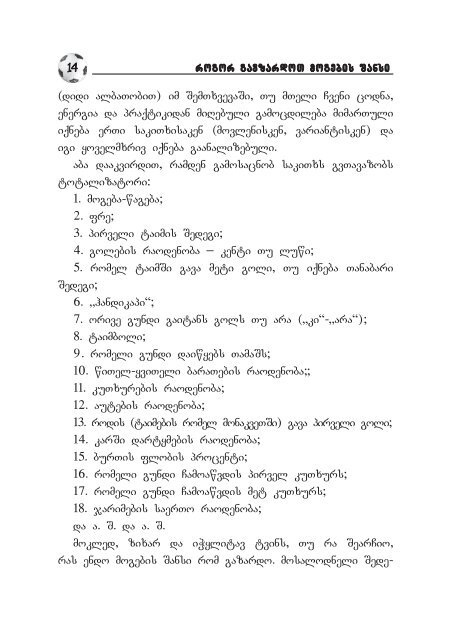 14 როგორ გავზარდოთ მოგების შანსი
(დიდი ალბათობით) იმ შემთხვევაში, თუ მთელი ჩვენი ცოდნა,
ენერგია და პრაქტიკიდან მიღებული გამოცდილება მიმართული
იქნება ერთი საკითხისაკენ (მოვლენისკენ, ვარიანტისკენ) და
იგი ყოველმხრივ იქნება გაანალიზებული.
აბა დააკვირდით, რამდენ გამოსაცნობ საკითხს გვთავაზობს
ტოტალიზატორი:
1. მოგება-წაგება;
2. ფრე;
3. პირველი ტაიმის შედეგი;
4. გოლების რაოდენობა – კენტი თუ ლუწი;
5. რომელ ტაიმში გავა მეტი გოლი, თუ იქნება თანაბარი
შედეგი;
6. „ჰანდიკაპი“;
7. ორივე გუნდი გაიტანს გოლს თუ არა („კი“-„არა“);
8. ტაიმბოლი;
9. რომელი გუნდი დაიწყებს თამაშს;
10. წითელ-ყვითელი ბარათების რაოდენობა;;
11. კუთხურების რაოდენობა;
12. აუტების რაოდენობა;
13. როდის (ტაიმების რომელ მონაკვეთში) გავა პირველი გოლი;
14. კარში დარტყმების რაოდენობა;
15. ბურთის ფლობის პროცენტი;
16. რომელი გუნდი ჩამოაწვდის პირველ კუთხურს;
17. რომელი გუნდი ჩამოაწვდის მეტ კუთხურს;
18. ჯარიმების საერთო რაოდენობა;
და ა. შ. და ა. შ.
მოკლედ, ზიხარ და იჭყლიტავ ტვინს, თუ რა შეარჩიო,
რას ენდო მოგების შანსი რომ გაზარდო. მოსალოდნელი შედე-